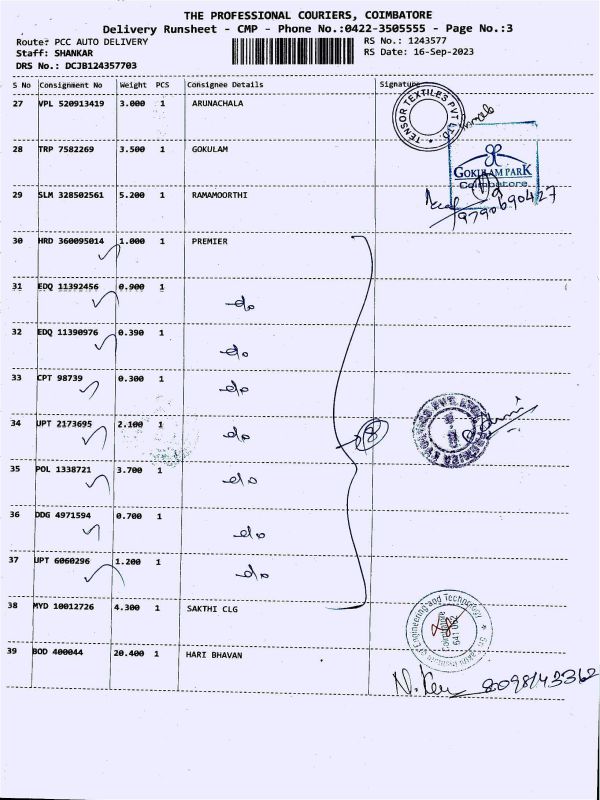 THE PROFESSIONAL COURIERS, COIMBATORE
Delivery Runsheet - CMP - Phone No.:0422-3505555 - Page No.:3
Route: PCC AUTO DELIVERY
RS No.: 1243577
Staff: SHANKAR
RS Date: 16-Sep-2023
DRS No.: DCJB124357703
S No Consignment No Weight PCS Consignee Details Signature
27 VPL 520913419 3.000 1 ARUNACHALA
TENSOR TEXTILES PVT LTD
28 TRP 7582269 3.500 1 GOKULAM
GOKULAM PARK
Coimbatore
29 SLM 328502561 5.200 1 RAMAMOORTHI
9790690427
30 HRD 360095014 1.000 1 PREMIER
31 EDQ 11392456 0.900 1 do
32 EDQ 11390976 0.390 1 do
33 CPT 98739 0.300 1 do
34 UPT 2173695 2.100 1 do
8
35 POL 1338721 3.700 1 do
36 DDG 4971594 0.700 1 do
37 UPT 6060296 1.200 1 do
38 MYD 10012726 4.300 1 SAKTHI CLG
of Engineering and Technology
Coimbatore
641 062
39 BOD 400044 20.400 1 HARI BHAVAN
8098143362